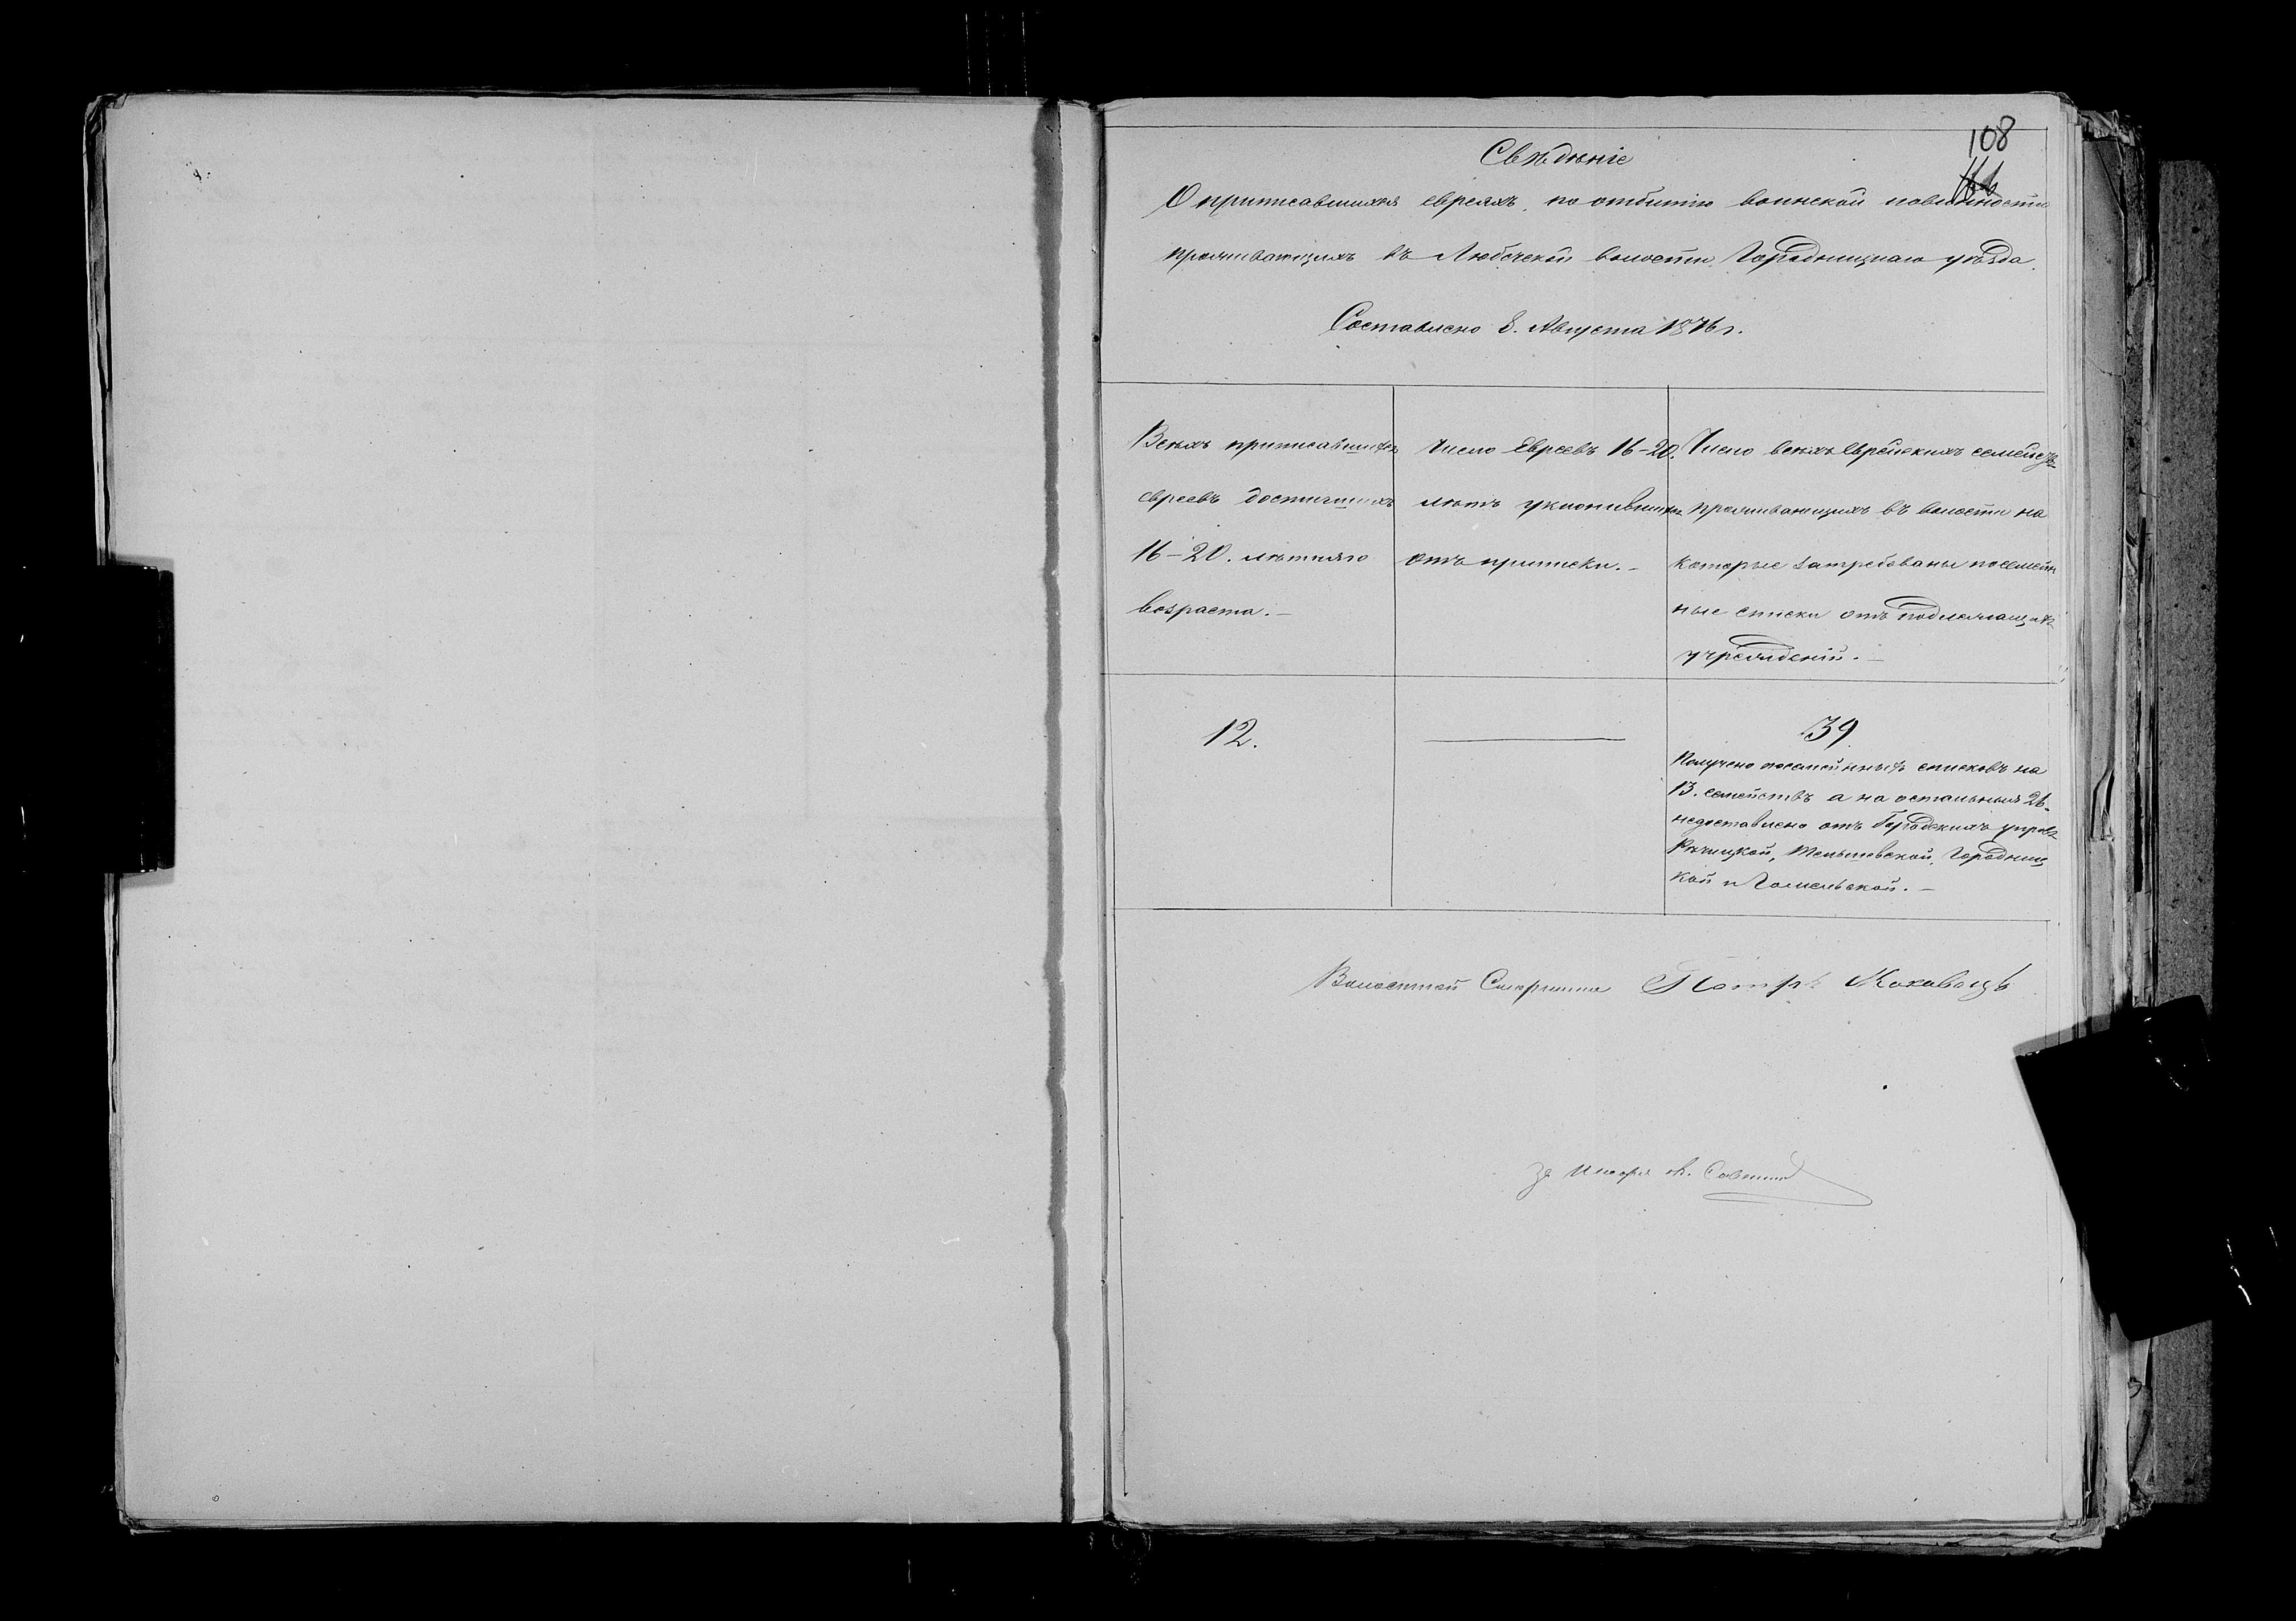 108
Свѣдѣніе
О приписавшихся евреяхъ, по отбытію воинской повинности
проживающихъ въ Любечской волости Городницкаго уѣзда.
Составлено 8. Августа 1876 г.
Всѣхъ приписавшихся
евреевъ достигшихъ
16-20. лѣтняго
возраста. —
Число Евреевъ 16-20.
лѣтъ уклонившихся
отъ приписки. —
Число всѣхъ Еврейскихъ семействъ
проживающихъ въ волости на
которые затребованы посемей
ные списки отъ подлежащихъ
учрежденій. —
12.
—
39
Получено посемейныхъ списковъ на
13. семействъ а на остальныя 26.
недоставлено отъ Городскихъ управъ
Рѣчицкой, Городниц
кой и Гомельской. —
Волостной Старшина Петръ
За Писаря